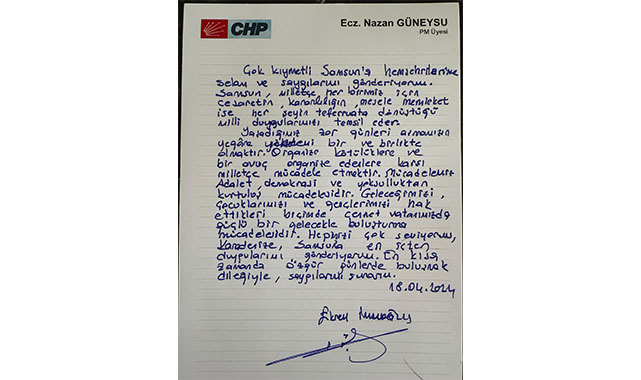 CHP
Ecz. Nazan GÜNEYSU
PM Üyesi
Çok kıymetli Samsun'lu hemşehrilerime
selam ve saygılarımı gönderiyorum.
Samsun, milletçe her birimiz için
cesaretin, kararlılığın, mesele memleket
ise her şeyin teferruata dönüştüğü
milli duygularımızı temsil eder.
Yaşadığımız zor günleri aşmanın
yegâne yöntemi bir ve birlikte
olmaktır. Organize kötülüklere ve
bir avuç organize edenlere karşı
milletçe mücadele etmektir. Mücadelemiz
Adalet, demokrasi ve yoksulluktan
kurtuluş mücadelesidir. Geleceğimizi,
çocuklarımızı ve gençlerimizi hak
ettikleri biçimde cennet vatanımızda
güçlü bir gelecekle buluşturma
mücadelesidir. Hepinizi çok seviyorum,
Karadenize, Samsuna en içten
duygularımı gönderiyorum. En kısa
zamanda özgür günlerde buluşmak
dileğiyle, saygılarımı sunarım.
Ekrem İmamoğlu